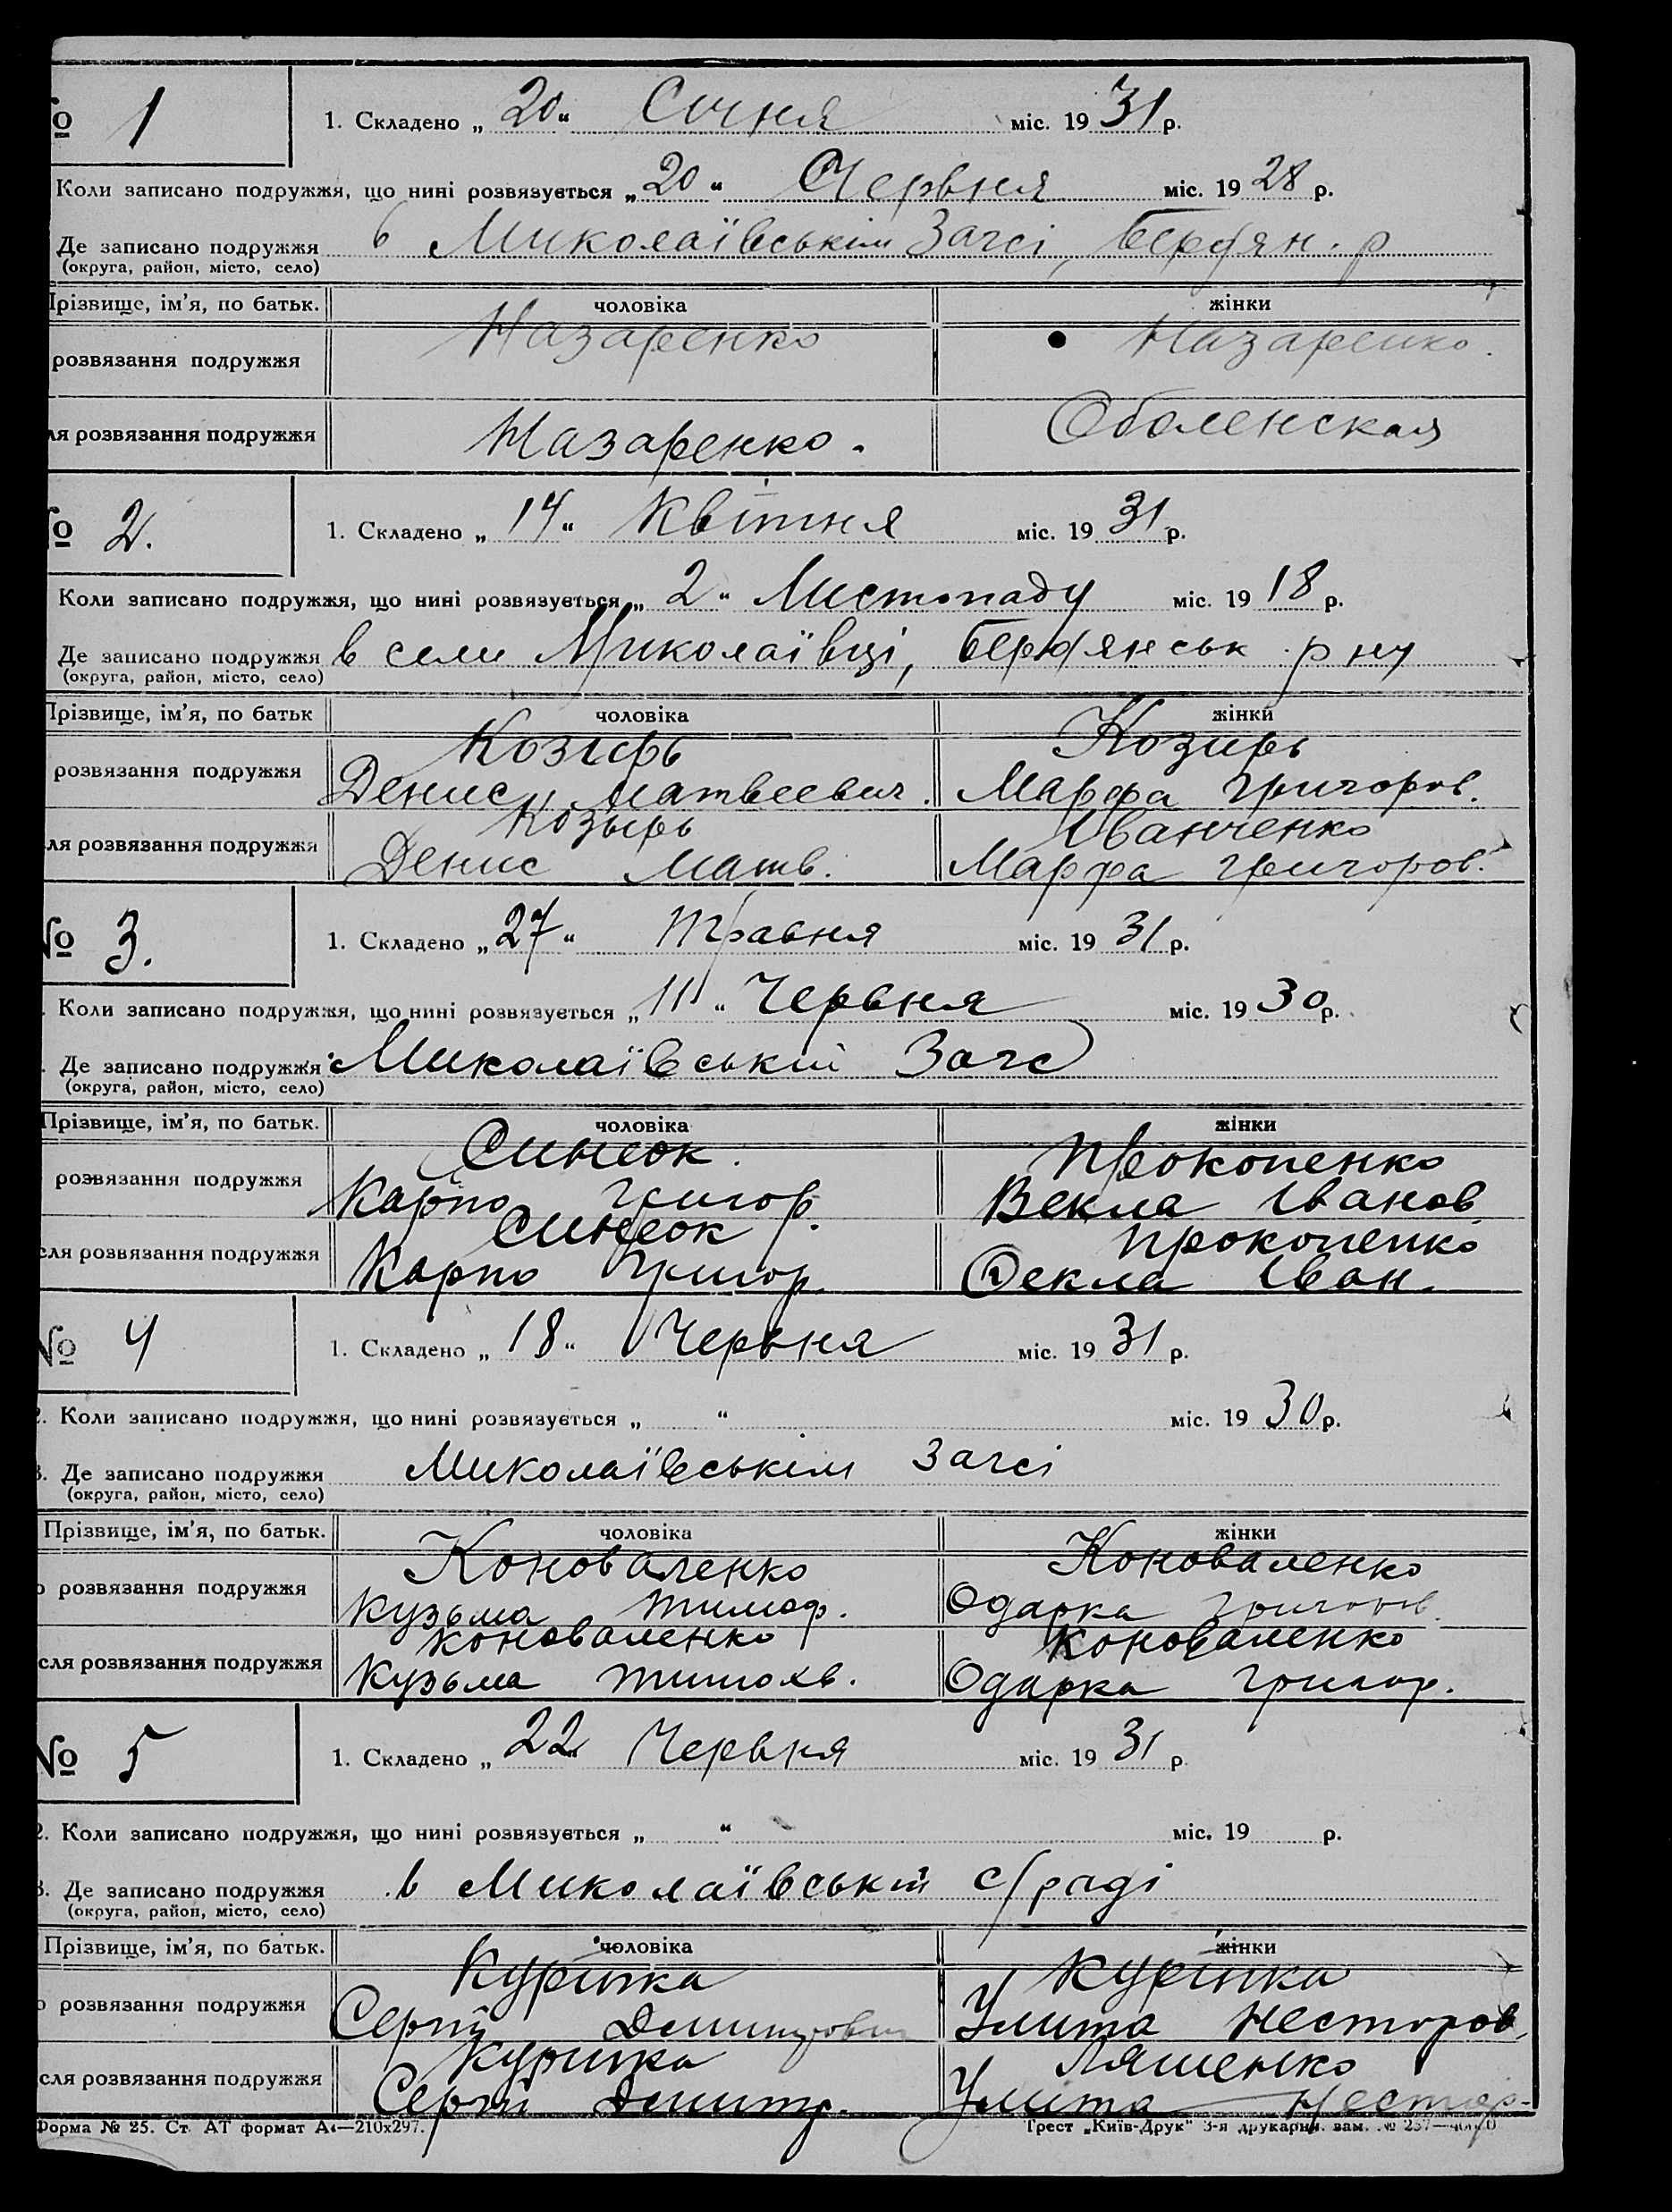 № 1
1. Складено „20“ Січня міс. 1931 р.
Коли записано подружжя, що нині розвязується „20“ Червня міс. 1928 р.
Де записано подружжя в Миколаївськім Загсі, Бердян. р
(округа, район, місто, село)
Прізвище, ім’я, по батьк. чоловіка жінки
розвязання подружжя Назаренко Назаренко.
ля розвязання подружжя Назаренко. Оболенская
№ 2.
1. Складено „14“ Квітня міс. 1931 р.
Коли записано подружжя, що нині розвязується „2“ Листопаду міс. 1918 р.
Де записано подружжя в сели Миколаївці, Бердянськ р ну
(округа, район, місто, село)
Прізвище, ім’я, по батьк чоловіка жінки
Козирь Козирь
розвязання подружжя Денис Матвеевич. Марфа Григоров.
Козырь Іванченко
ля розвязання подружжя Денис Матв. Марфа Григоров.
№ 3.
1. Складено „27“ Травня міс. 1931 р.
Коли записано подружжя, що нині розвязується „11“ Червня міс. 1930 р.
Де записано подружжя Миколаївській Загс
(округа, район, місто, село)
Прізвище, ім’я, по батьк. чоловіка жінки
Синеок. Прокопенко
розвязання подружжя Карпо Григор. Векла Іванов
Синеок Прокопенко
сля розвязання подружжя Карпо Григор. Фекла Іван.
№ 4
1. Складено „18“ Червня міс. 1931 р.
2. Коли записано подружжя, що нині розвязується „ “ міс. 1930 р.
3. Де записано подружжя Миколаївськім Загсі
(округа, район, місто, село)
Прізвище, ім’я, по батьк. чоловіка жінки
Коноваленко Коноваленко
о розвязання подружжя Кузьма Тимоф. Одарка Григоров.
Коноваленко Коноваленко
сля розвязання подружжя Кузьма Тимохв. Одарка Григор.
№ 5
1. Складено „22“ Червня міс. 1931 р.
2. Коли записано подружжя, що нині розвязується „ “ міс. 19 р.
3. Де записано подружжя в Миколаївській с/раді
(округа, район, місто, село)
Прізвище, ім’я, по батьк. чоловіка жінки
Курінка Курінка
о розвязання подружжя Сергій Дмитрович Улита Несторов.
Курінка Ляшенко
сля розвязання подружжя Сергій Дмитр. Улита Нестор.
Форма № 25. Ст. АТ формат А4—210х297. Трест „Київ-Друк“ 3-я друкарня. зам. № 237—